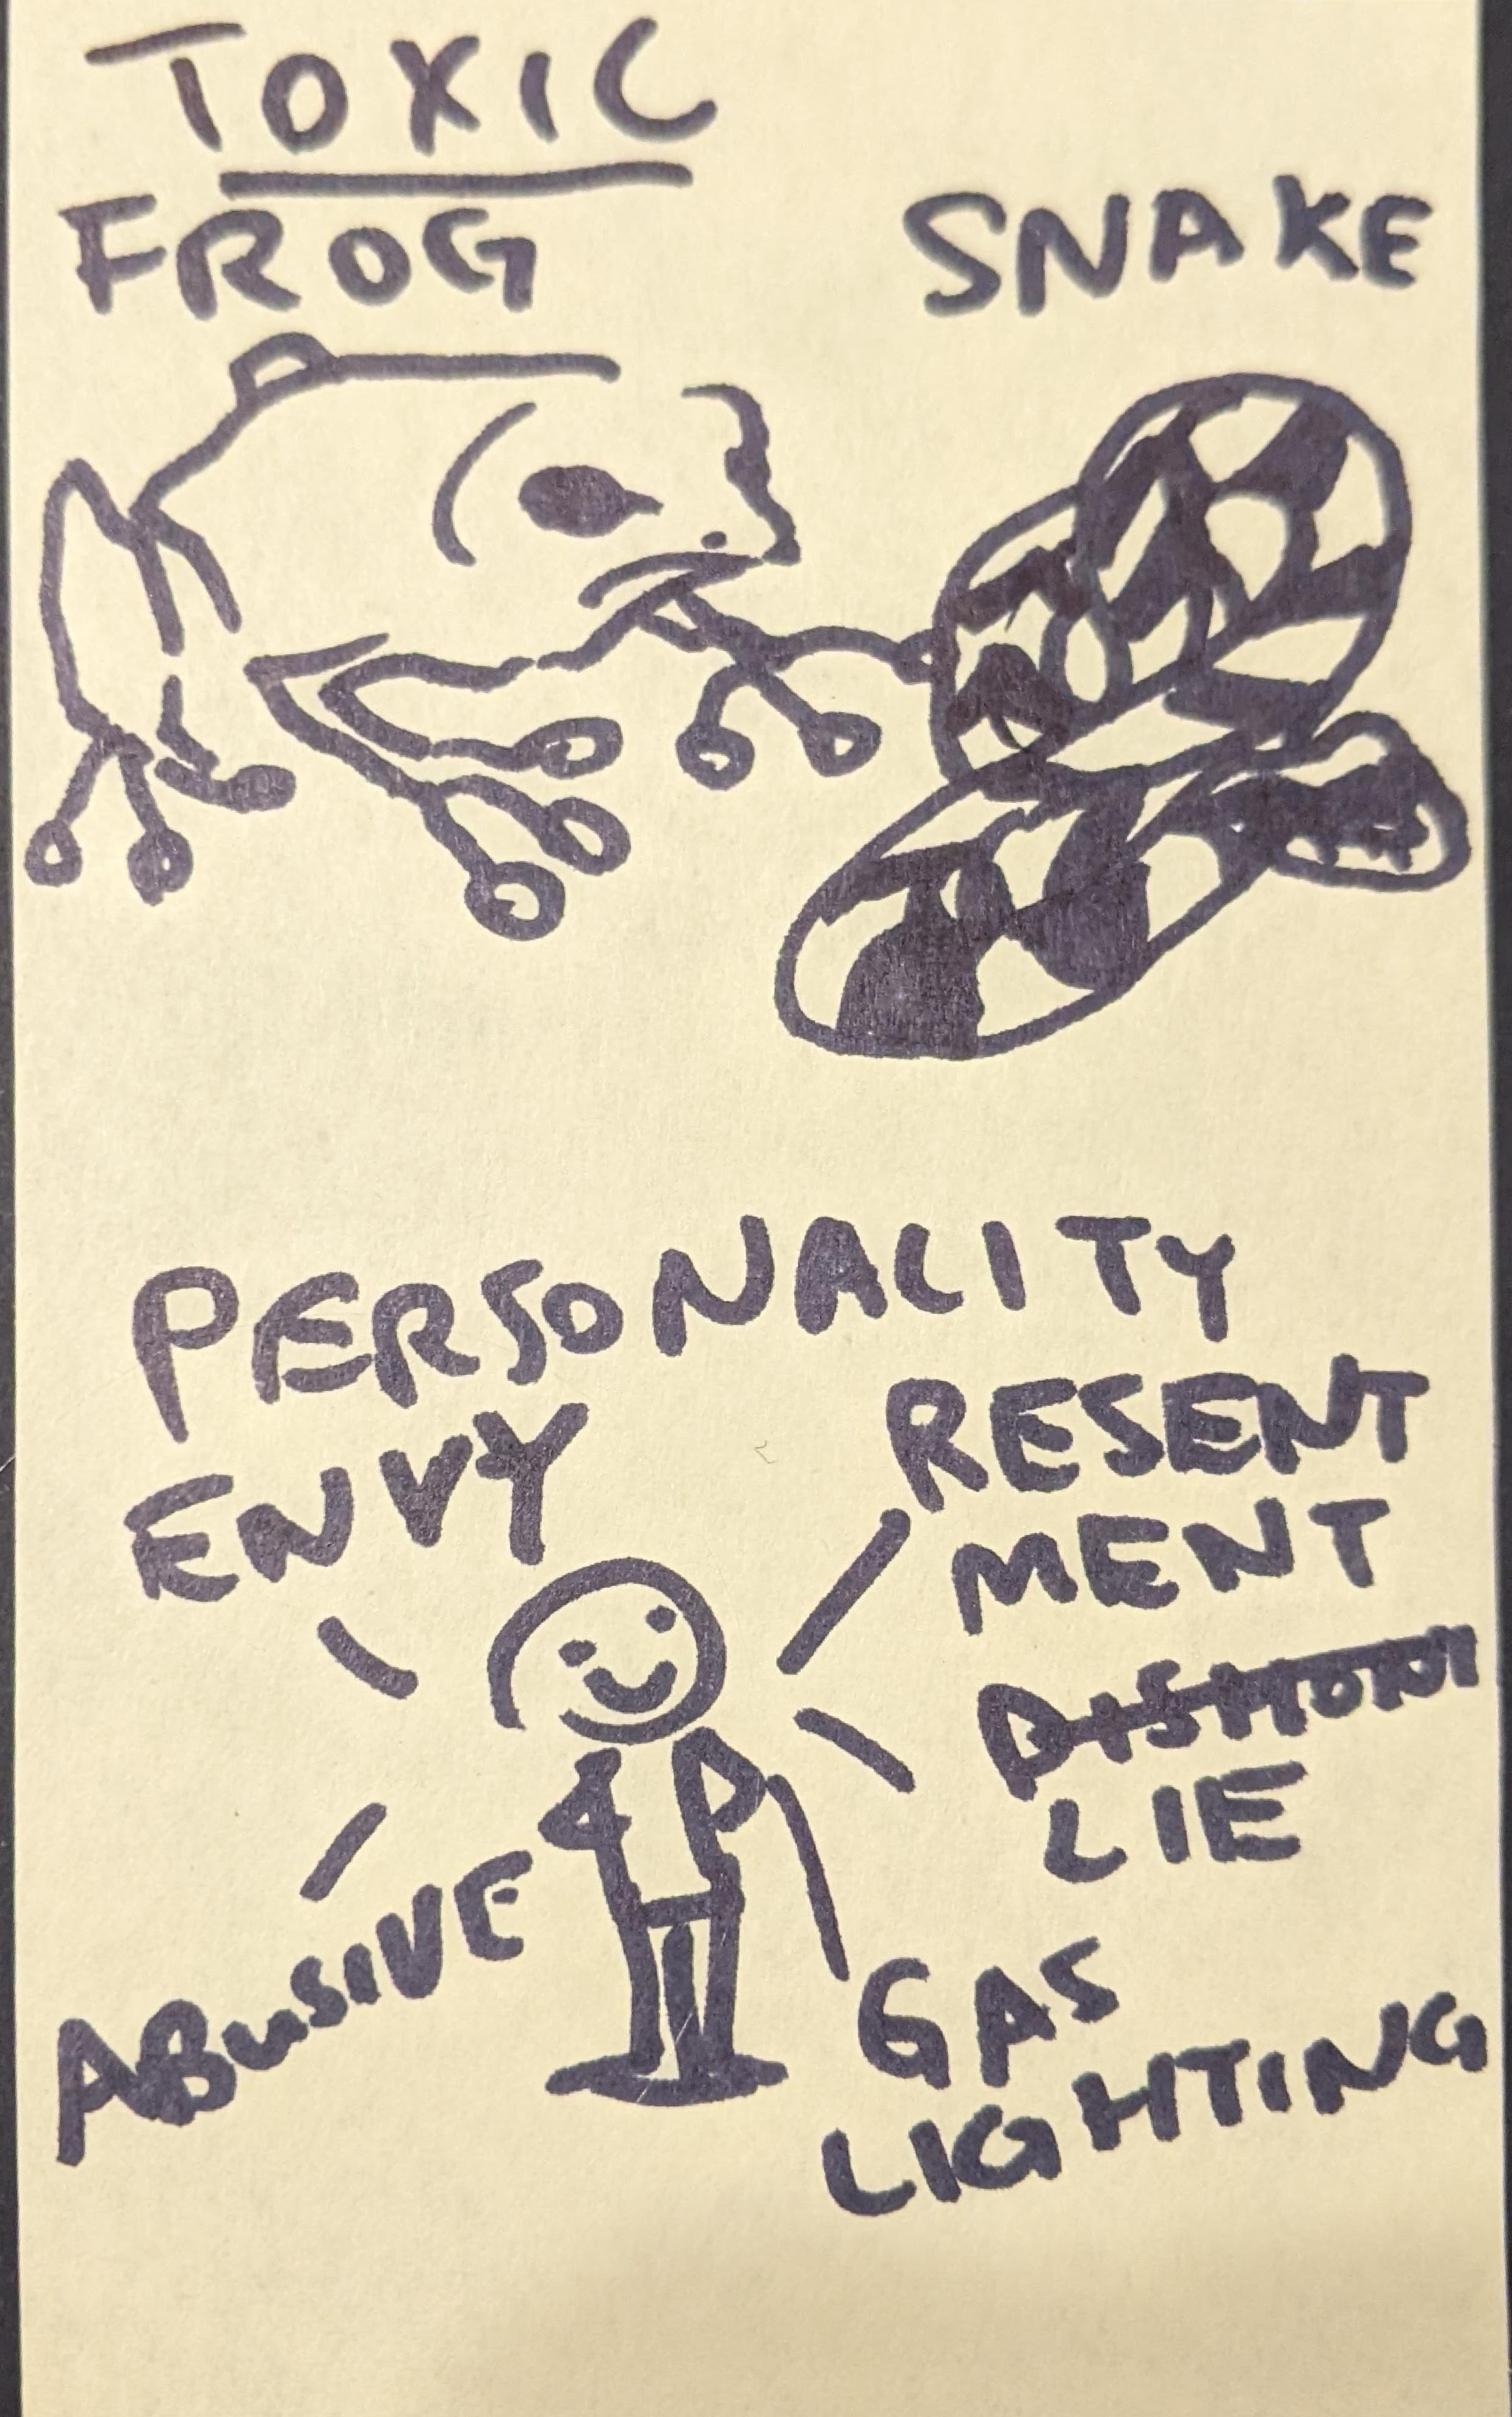 TOXIC
FROG
SNAKE
PERSONALITY
ENVY
RESENT
MENT
DISHON
LIE
ABUSIVE
GAS
LIGHTING